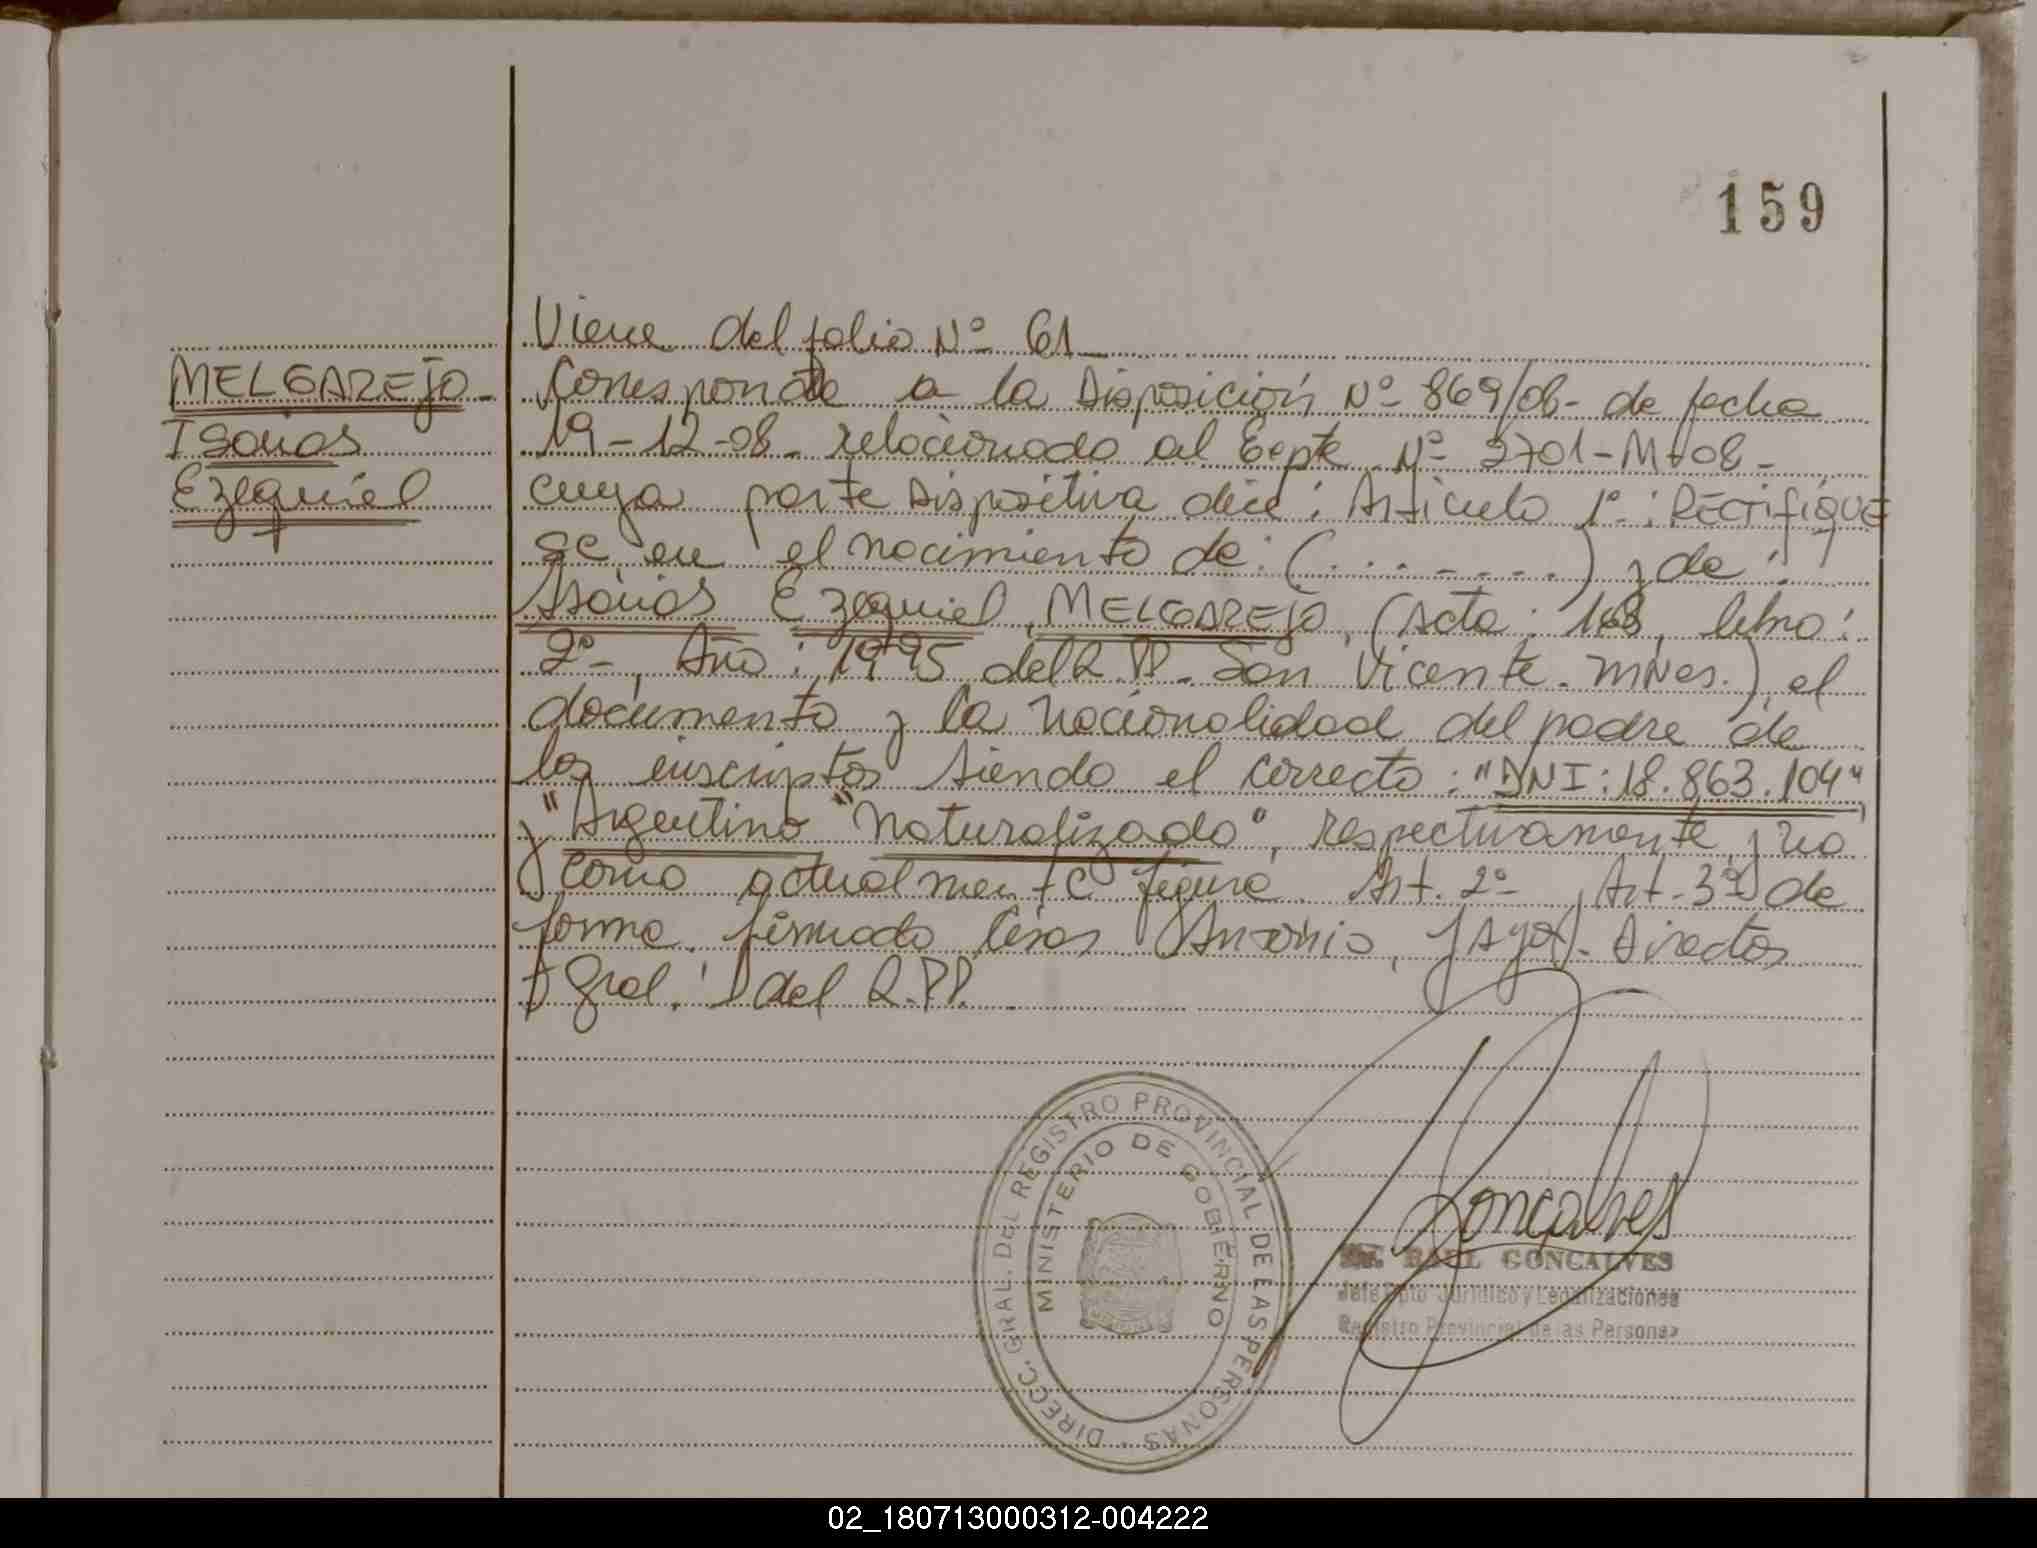 159
Viene del folio Nº 61
MELGAREJO- Corresponde a la Disposición Nº 869/08- de fecha
Isaias 19-12-08- relacionado al Expte Nº 2701-M-08-
Ezequiel cuya parte Dispositiva dice: Articulo 1º: RECTIFIQUE
se en el nacimiento de: (.........) y de:
Isaias Ezequiel, MELGAREJO, (Acta: 168, libro:
2º-, Año: 1995 del R.PP. San Vicente. Mnes.), el
documento y la nacionalidad del padre de
los inscriptos siendo el correcto: "DNI: 18.863.104"
y "Argentino "Naturalizado", respectivamente, y no
como actualmente figura. Art. 2º Art. 3º de
forma. firmado Antonio, Director
Gral. del R.PP.
DIRECC. GRAL. DEL REGISTRO PROVINCIAL DE LAS PERSONAS
MINISTERIO DE GOBIERNO
Goncalves
RAUL GONCALVES
Jefe Dpto Jurídico y Legalizaciones
Registro Provincial de las Personas
02_180713000312-004222